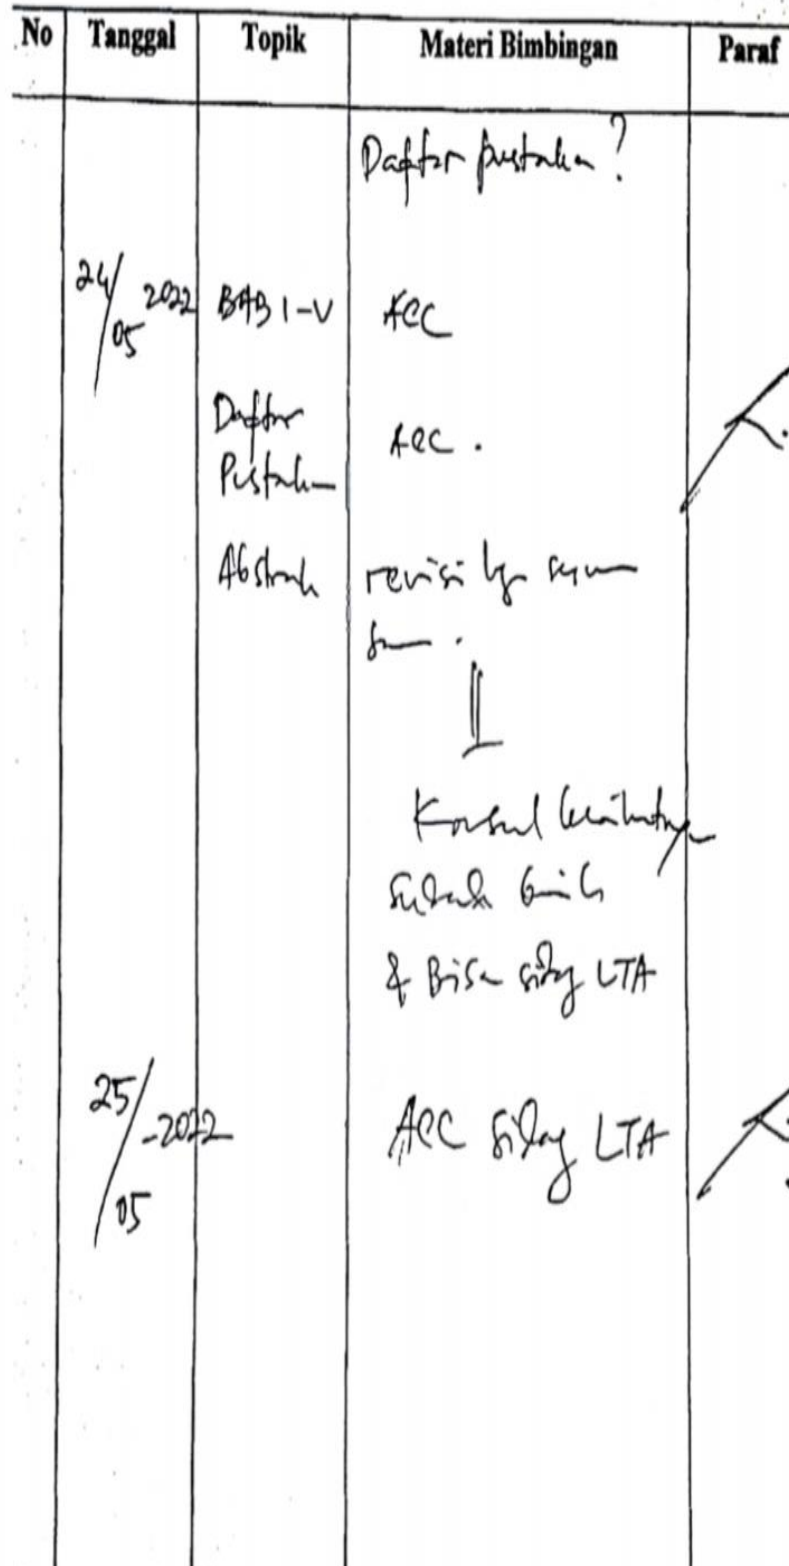 No Tanggal Topik Materi Bimbingan Paraf
Daftar pustaka ?
24/05 2022 BAB I-V ACC
Daftar
Pustaka ACC .
Abstrak revisi
Konsul berikutnya
& Bisa sidang LTA
25/05-2022 ACC sidang LTA